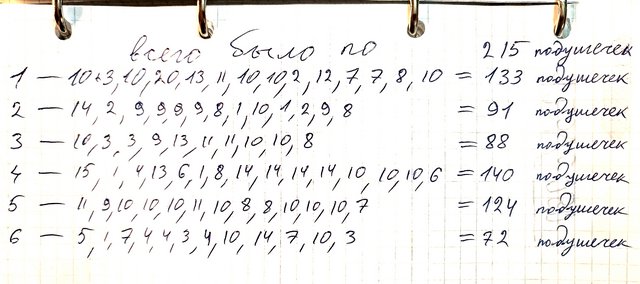 всего было по 215 подушечек
1 — 10+3, 10, 20, 13, 11, 10, 10, 2, 12, 7, 7, 8, 10 = 133 подушечек
2 — 14, 2, 9, 9, 9, 9, 8, 1, 10, 1, 2, 9, 8 = 91 подушечек
3 — 10, 3, 3, 9, 13, 11, 11, 10, 10, 8 = 88 подушечек
4 — 15, 1, 4, 13, 6, 1, 8, 14, 14, 14, 14, 10, 10, 10, 6 = 140 подушечек
5 — 11, 9, 10, 10, 10, 11, 10, 8, 8, 10, 10, 10, 7 = 124 подушечек
6 — 5, 1, 7, 4, 4, 3, 4, 10, 14, 7, 10, 3 = 72 подушечек